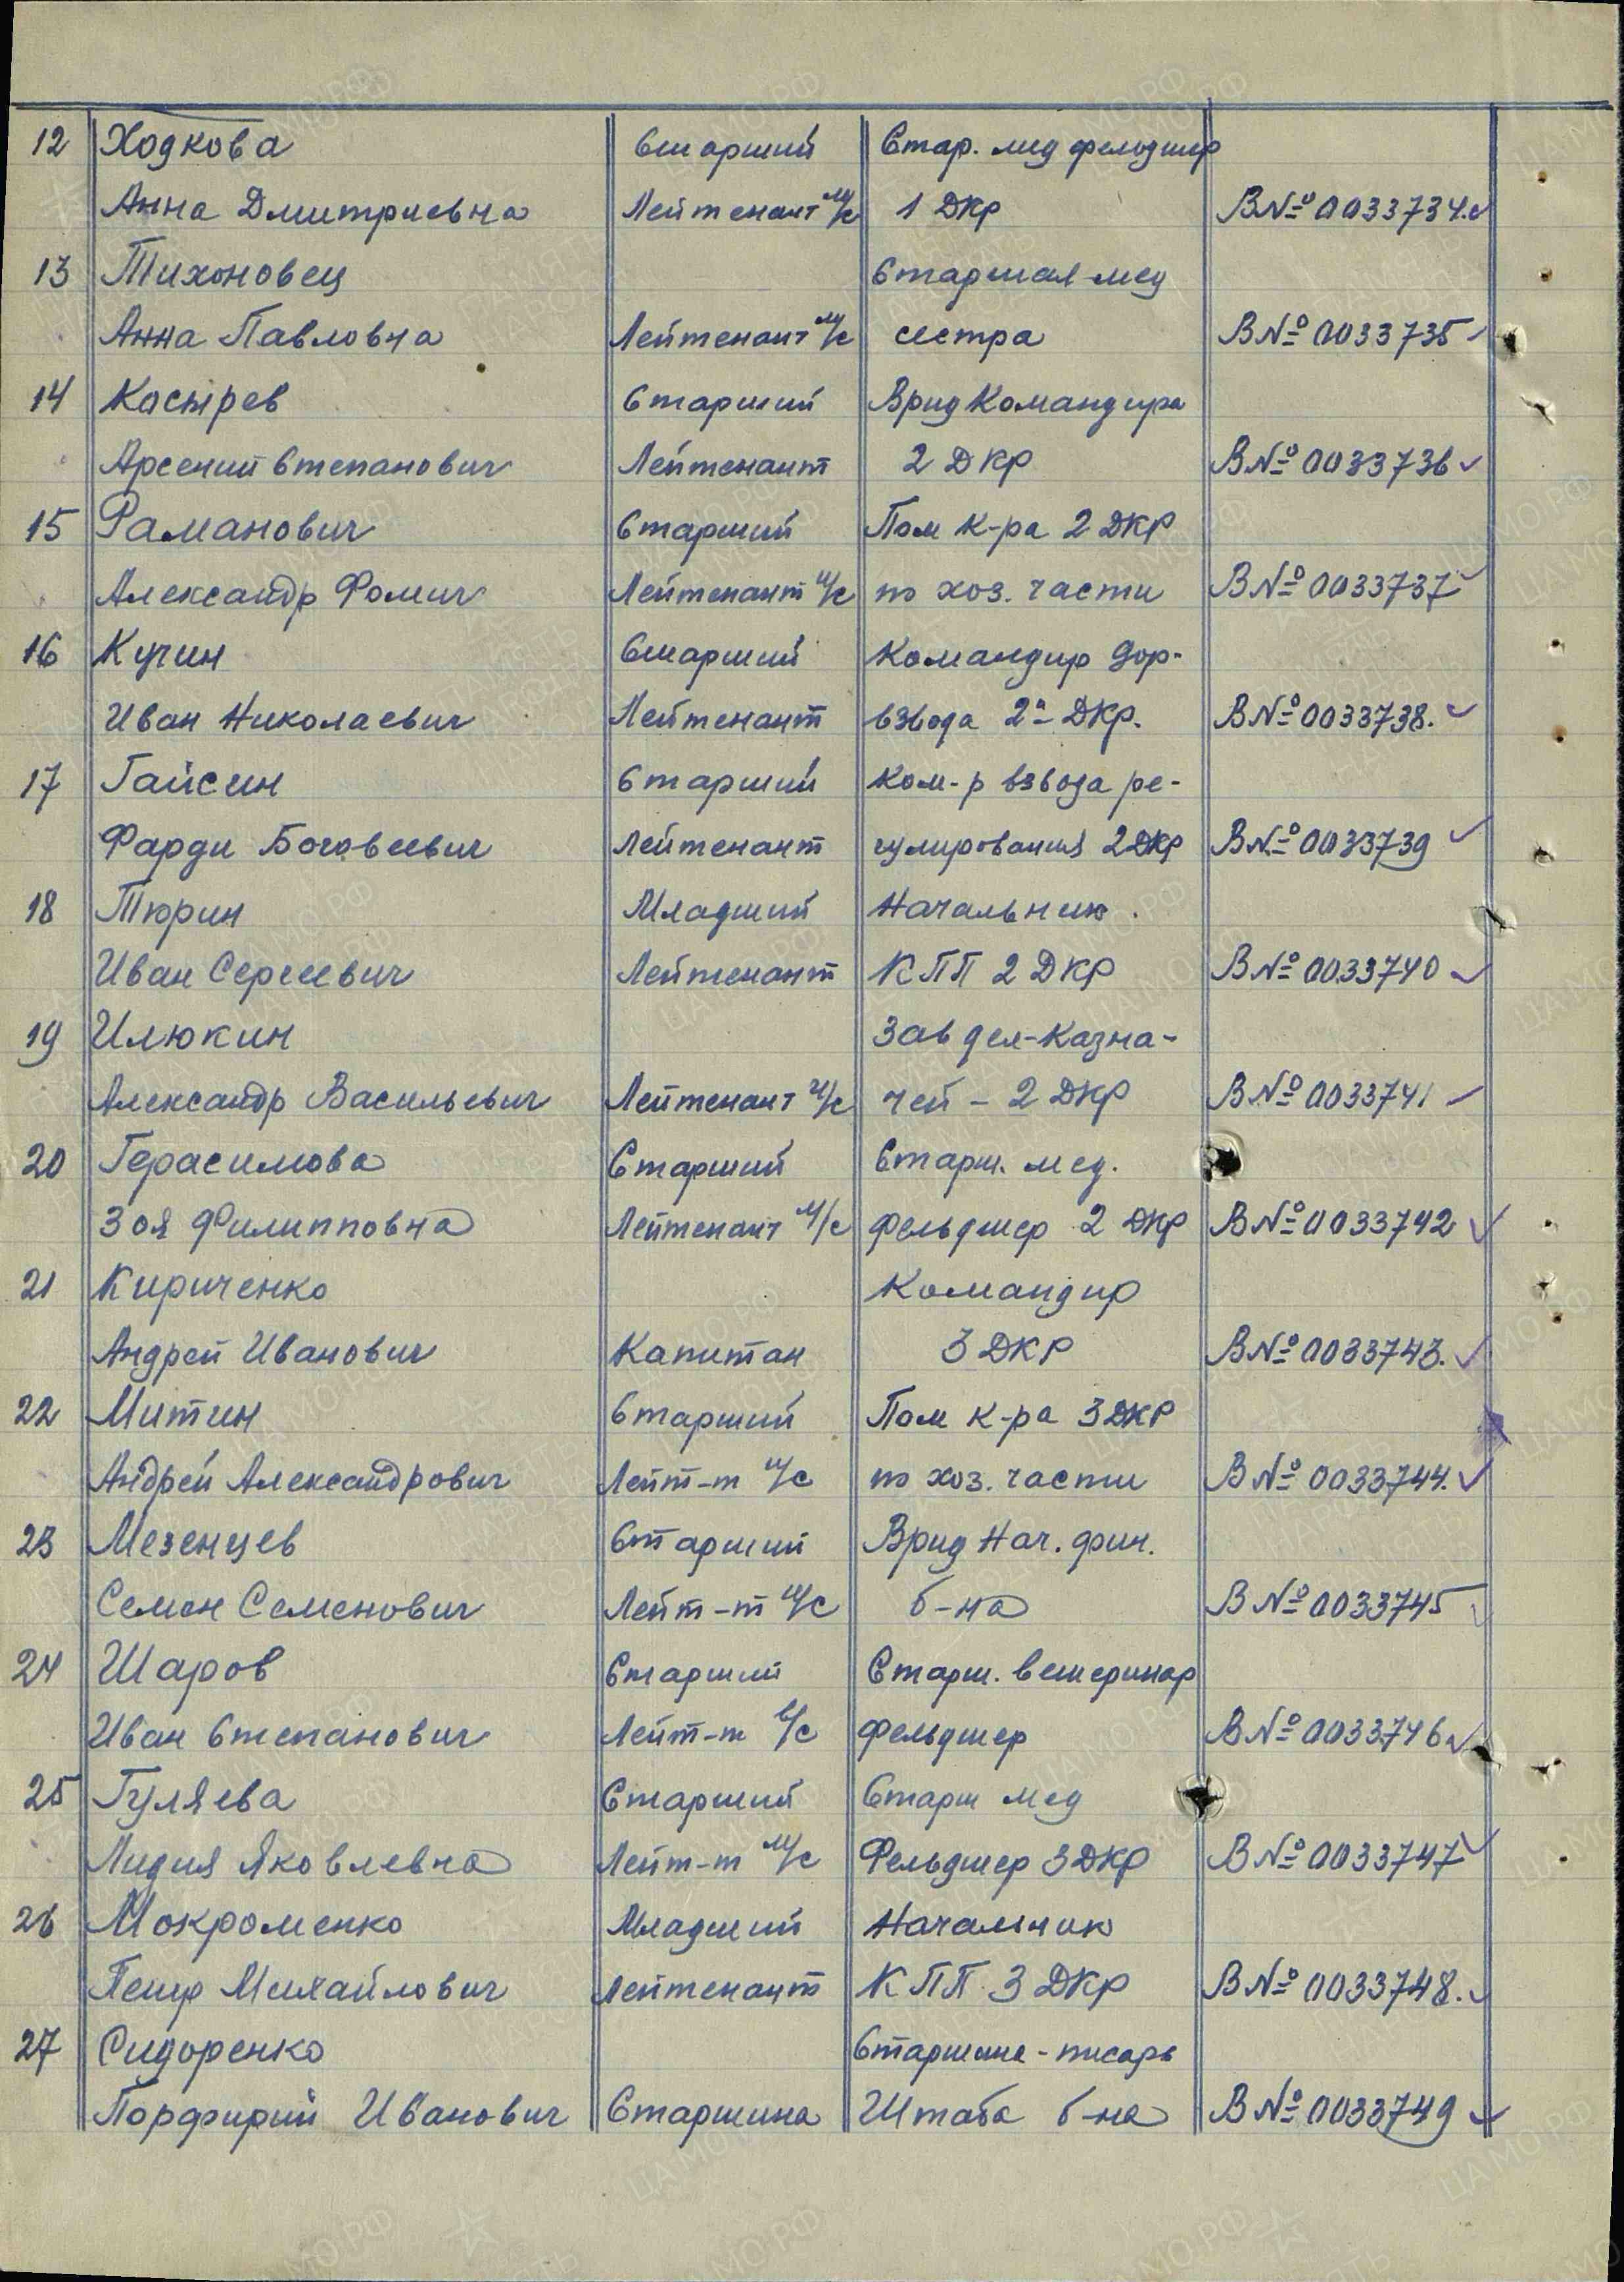 12 Ходкова Старший Стар. мед фельдшер
Анна Дмитриевна Лейтенант м/с 1 ДКР В№ 0033734.
13 Тихоновец Старшая мед
Анна Павловна Лейтенант м/с сестра В№ 0033735
14 Косырев Старший Врид Командира
Арсений Степанович Лейтенант 2 ДКР В№ 0033736
15 Раманович Старший Пом к-ра 2 ДКР
Александр Фомич Лейтенант и/с по хоз. части В№ 0033737
16 Кучин Старший Командир дор-
Иван Николаевич Лейтенант взвода 2й ДКР. В№ 0033738.
17 Гайсин Старший Ком-р взвода ре-
Фарди Лейтенант гулирования 2 ДКР В№ 0033739
18 Тюрин Младший Начальник
Иван Сергеевич Лейтенант КПП 2 ДКР В№ 0033740
19 Илюкин Зав дел-казна-
Александр Васильевич Лейтенант и/с чей - 2 ДКР В№ 0033741
20 Герасимова Старший Старш. мед.
Зоя Филипповна Лейтенант м/с фельдшер 2 ДКР В№ 0033742
21 Кириченко Командир
Андрей Иванович Капитан 3 ДКР В№ 0033743.
22 Митин Старший Пом к-ра 3 ДКР
Андрей Александрович Лейт-т и/с по хоз. части В№ 0033744.
23 Мезенцев Старший Врид Нач. фин.
Семен Семенович Лейт-т и/с б-на В№ 0033745
24 Шаров Старший Старш. ветеринар
Иван Степанович Лейт-т в/с фельдшер В№ 0033746
25 Гуляева Старший Старш мед
Лидия Яковлевна Лейт-т м/с Фельдшер 3 ДКР В№ 0033747
26 Мокроменко Младший Начальник
Петр Михайлович Лейтенант КПП 3 ДКР В№ 0033748.
27 Сидоренко Старшина - писарь
Порфирий Иванович Старшина Штаба б-на В№ 0033749